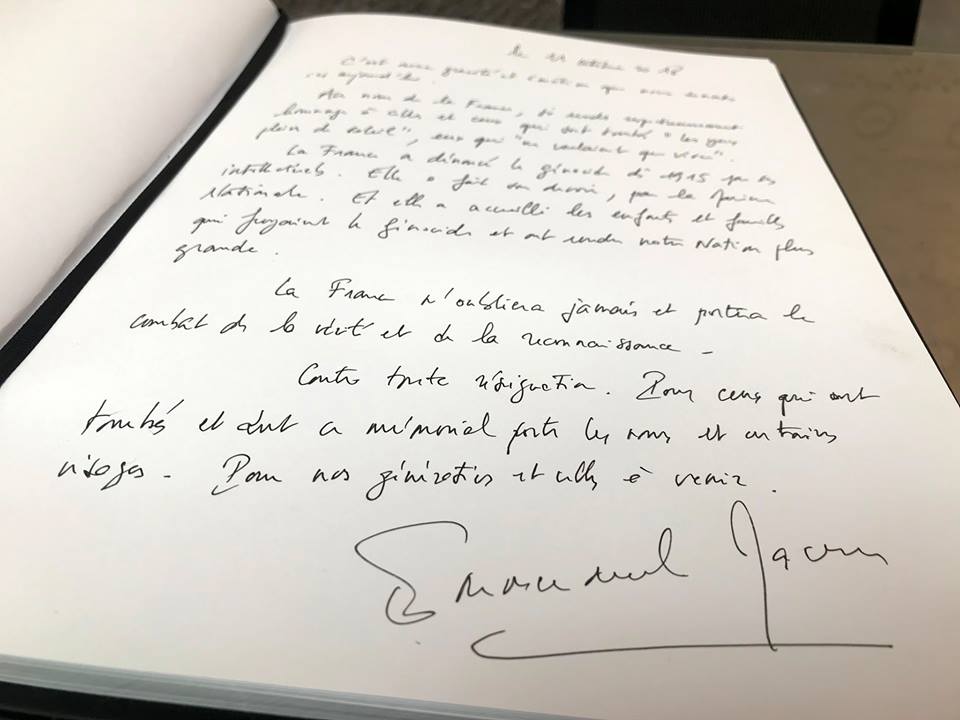 le 11 octobre 2018
C'est avec gravité et émotion que nous sommes
ici aujourd'hui.
Au nom de la France, je rends respectueusement
hommage à celles et ceux qui sont tombés "les yeux
plein de soleil", eux qui "ne voulaient que vivre".
La France a dénoncé le génocide de 1915 par ses
intellectuels. Elle a fait son devoir, par la Marine
Nationale. Et elle a accueilli les enfants et familles
qui fuyaient le génocide et ont rendu notre Nation plus
grande.
La France n'oubliera jamais et portera le
combat de la vérité et de la reconnaissance -
Contre toute résignation. Pour ceux qui ont
tombés et dont ce mémorial porte les noms et certains
visages - Pour nos générations et celles à venir.
Emmanuel Macron